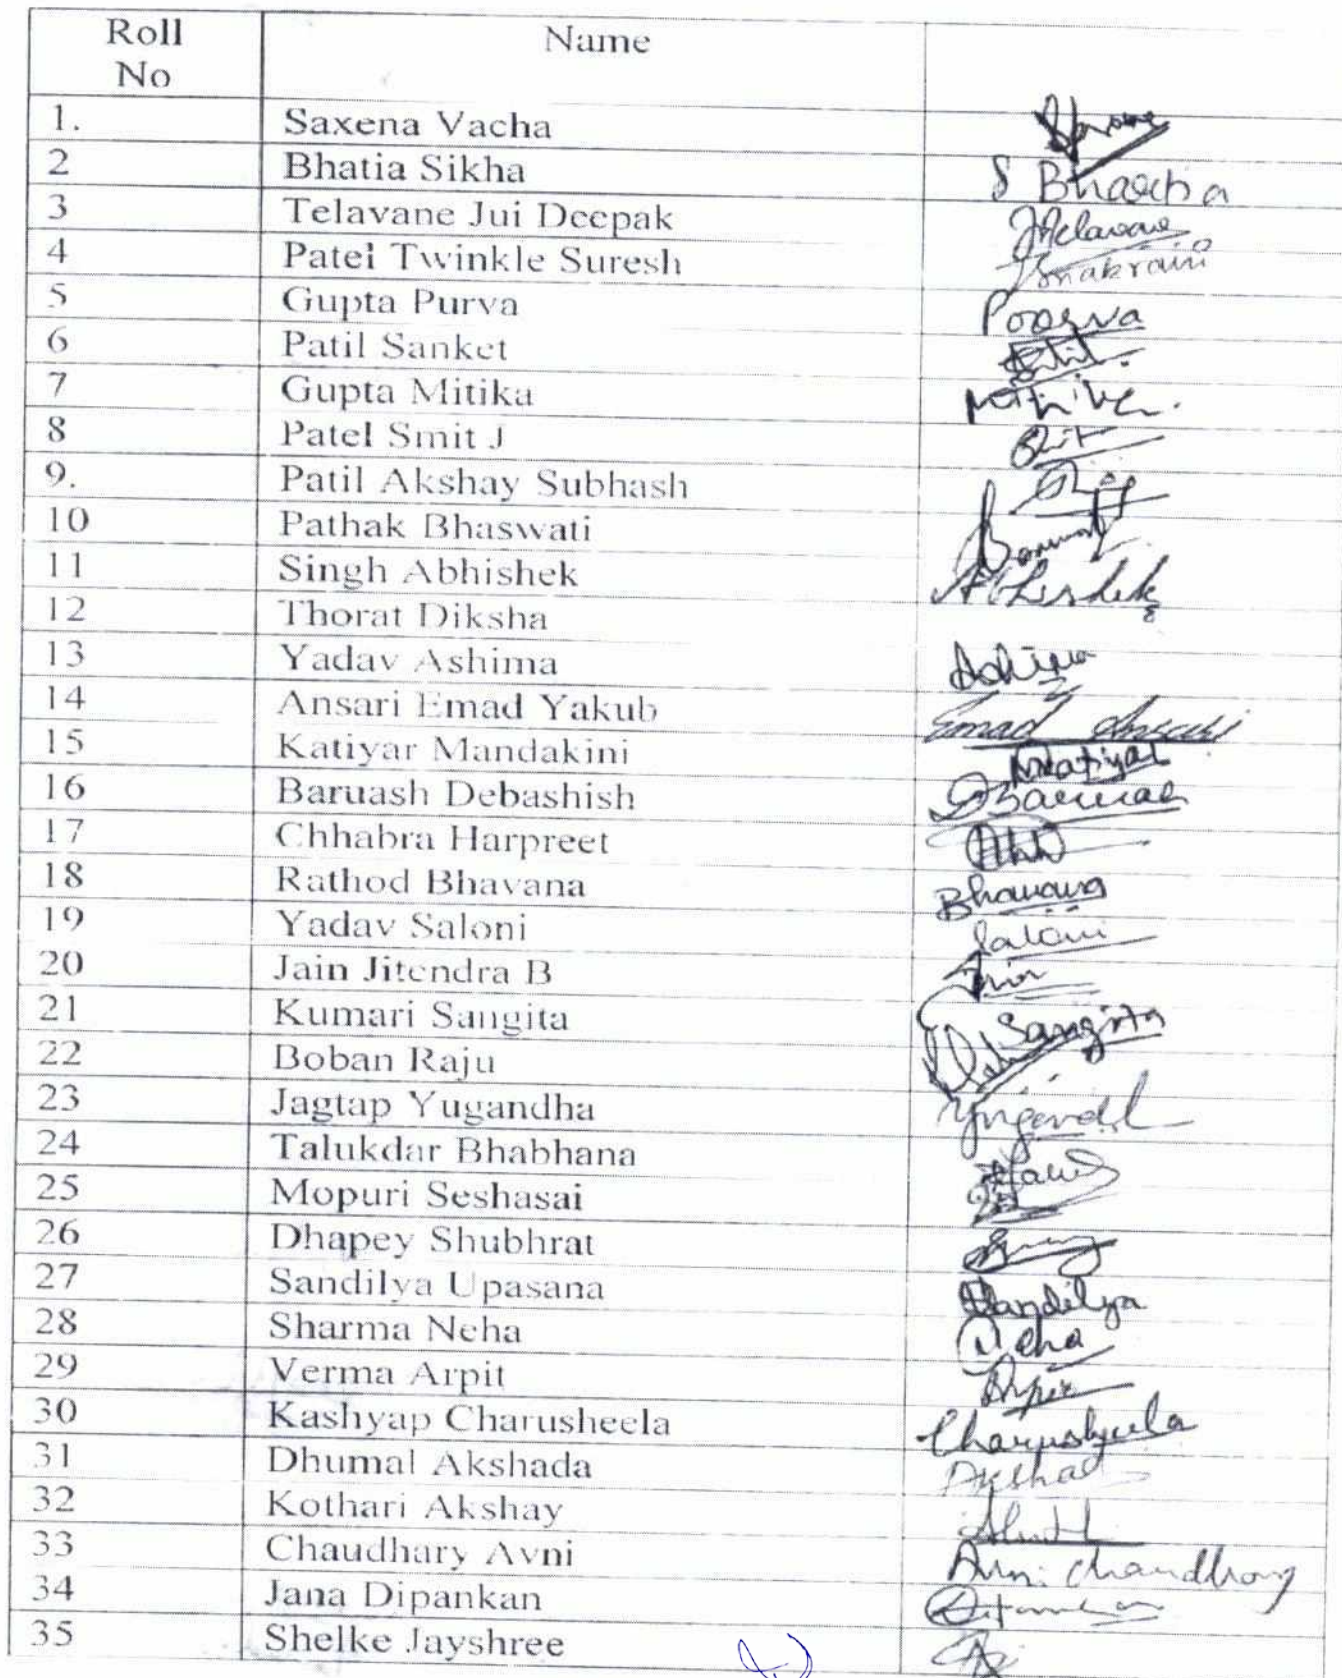 Roll No Name
1. Saxena Vacha
2 Bhatia Sikha S Bhatia
3 Telavane Jui Deepak JTelavane
4 Patel Twinkle Suresh
5 Gupta Purva Poorva
6 Patil Sanket Patil
7 Gupta Mitika Mitika.
8 Patel Smit J Smit
9. Patil Akshay Subhash
10 Pathak Bhaswati
11 Singh Abhishek Abhishek
12 Thorat Diksha
13 Yadav Ashima Ashima
14 Ansari Emad Yakub Emad Ansari
15 Katiyar Mandakini MKatiyar
16 Baruash Debashish DBaruah
17 Chhabra Harpreet
18 Rathod Bhavana Bhavana
19 Yadav Saloni Saloni
20 Jain Jitendra B Jain
21 Kumari Sangita Sangita
22 Boban Raju
23 Jagtap Yugandha
24 Talukdar Bhabhana
25 Mopuri Seshasai
26 Dhapey Shubhrat
27 Sandilya Upasana Sandilya
28 Sharma Neha Neha
29 Verma Arpit Arpit
30 Kashyap Charusheela Charusheela
31 Dhumal Akshada
32 Kothari Akshay
33 Chaudhary Avni Avni Chaudhary
34 Jana Dipankan
35 Shelke Jayshree